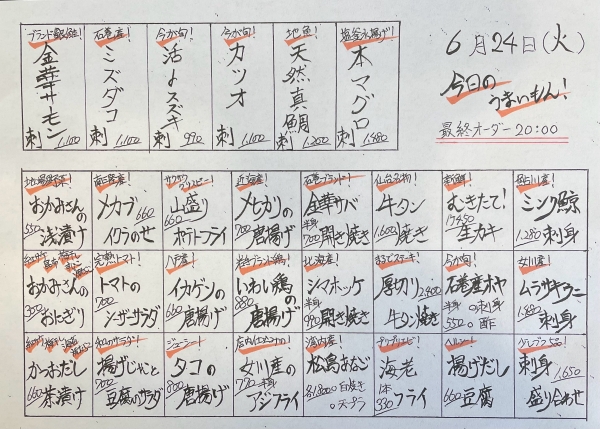 6月24日(火)
今日の
うまいもん!
最終オーダー 20:00
塩釜水揚げ!
本マグロ
刺 1,480
地魚!
天然真鯛
刺 1,200
今が旬!
カツオ
刺 1,100
今が旬!
活〆スズキ
刺 990
石巻産!
ミズダコ
刺 1,100
金華サーモン
刺 1,100
地場野菜!
おかみさんの
550 浅漬け
南三陸産!
メカブ 660
イクラのせ
サクサク
クリスピー!
山盛り
660
ポテトフライ
近海産!
メヒカリの
700 唐揚げ
石巻ブランド!
金華サバ
半身
700 開き焼き
仙台名物!
牛タン
1,600 焼き
新鮮!
むきたて!
1ケ450
生カキ
鮎川産!
ミンク鯨
1,280 刺身
おかみさんの
300 おにぎり
完熟トマト!
トマトの
700
シーザーサラダ
八戸産!
イカゲソの
660 唐揚げ
岩手ブランド鶏!
いわい鶏
880 の
唐揚げ
北海産!
シマホッケ
半身
990 開き焼き
まるでステーキ!
厚切り 2,400
牛タン焼き
今が旬!
石巻産ホヤ
半身 ○刺身
550 ○酢
女川産!
ムラサキウニ
1,980 刺身
かつおだし
660 茶漬け
和のサラダ!
揚げじゃこと
700
豆腐のサラダ
ジューシー!
タコの
800 唐揚げ
店内仕込み!
女川産の
770 半身
アジフライ
松島あなご
各1,800 ○白焼き
○天ぷら
海老
1本
330 フライ
ヘルシー!
揚げだし
660 豆腐
刺身 1,650
盛り合わせ